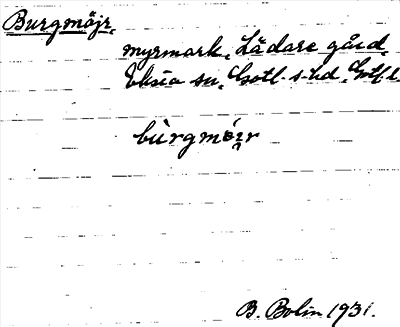 Burgmöjr,
myrmark, Lädare gård,
Eksta sn, Gotl. s. hd, Gotl. l.
bùrgmöi̯r
B. Bolin 1931.